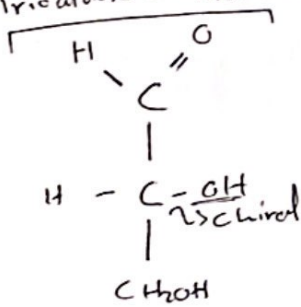 H O
C
H - C - OH
↳ chiral
CH2OH